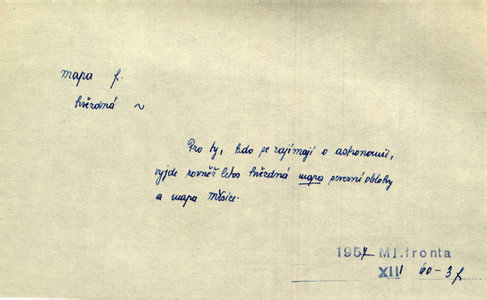 mapa f.
hvězdná ~
Pro ty, kdo se zajímají o astronomii,
vyjde rovněž letos hvězdná mapa severní oblohy
a mapa Měsíce.
1957 Ml. fronta
XIII 60-3 f